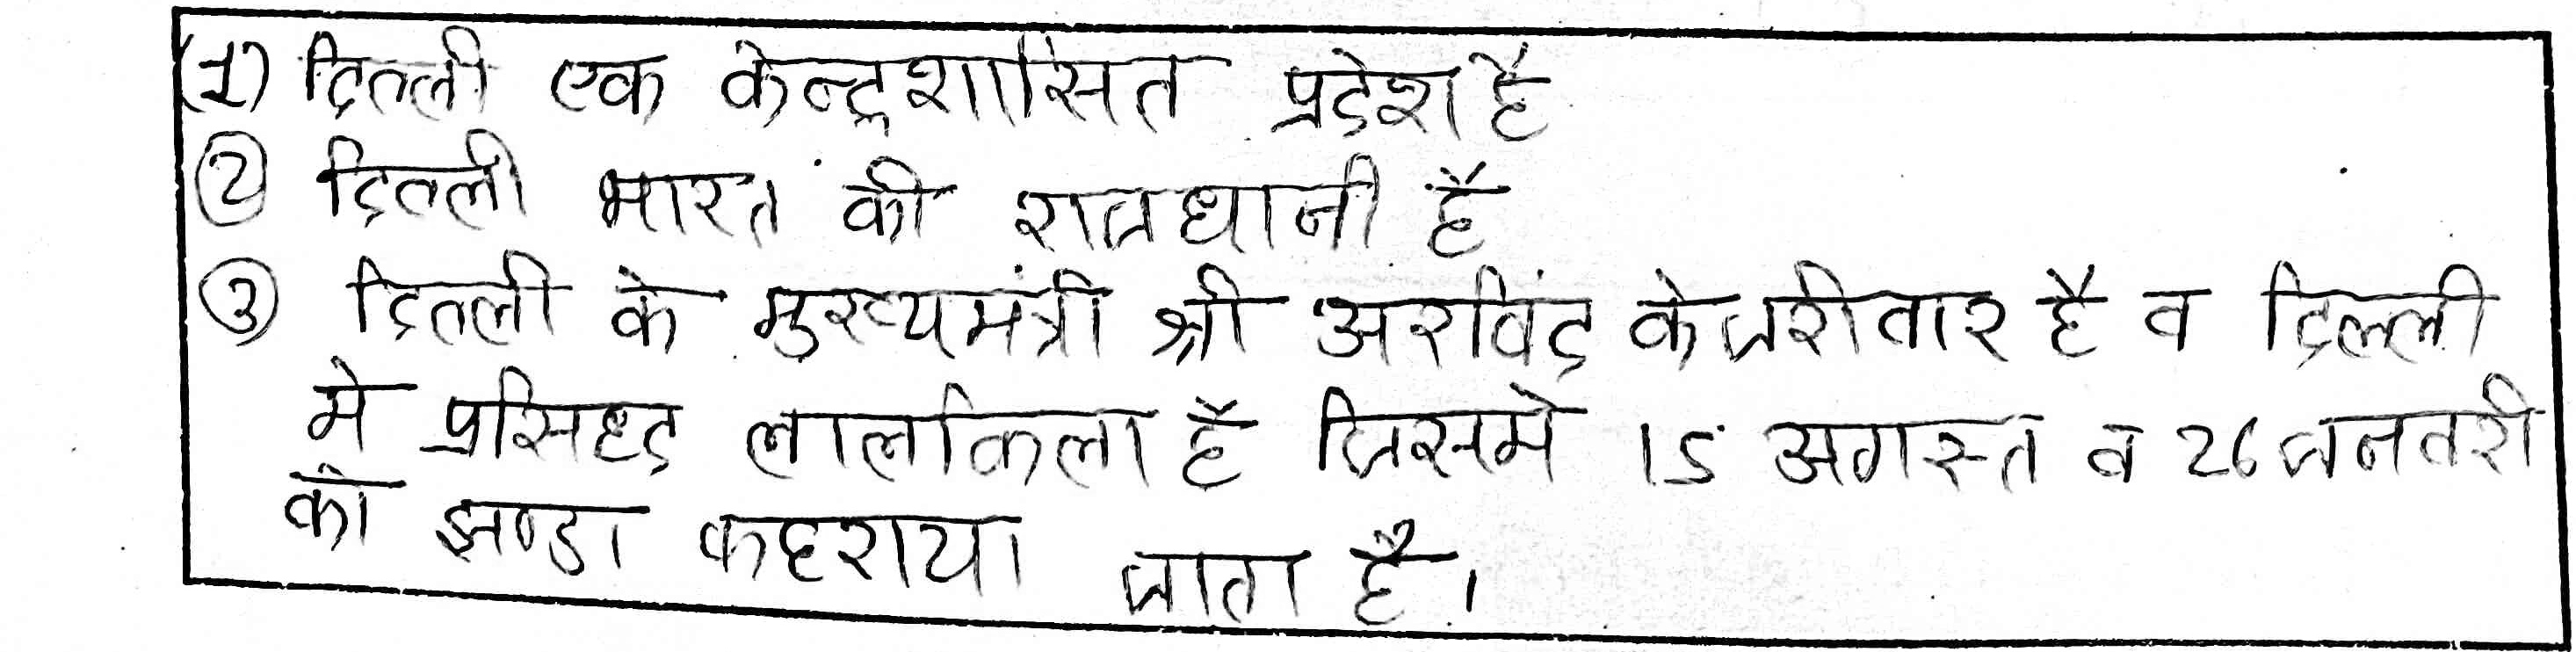 (1) दिल्ली एक केन्द्रशासित प्रदेश है
(2) दिल्ली भारत की राजधानी है
(3) दिल्ली के मुख्यमंत्री श्री अरविंद केजरीवार है व दिल्ली
मे प्रसिध्द लालकिला है जिसमे 15 अगस्त व 26 जनवरी
को झण्डा फहराया जाता है।